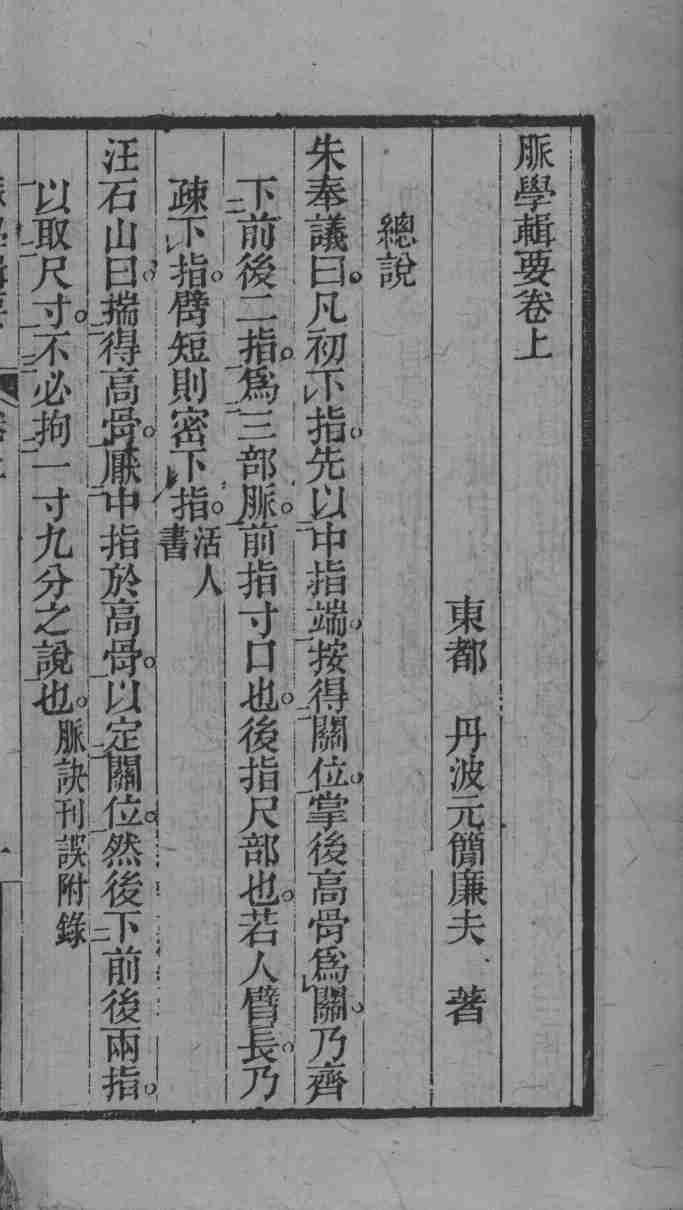 脈學輯要卷上
東都 丹波元簡廉夫 著
總說
朱奉議曰。凡初下指。先以中指端。按得關位。掌後高骨爲關。乃齊
下前後二指。爲三部脈。前指寸口也。後指尺部也。若人臂長。乃
疎下指。臂短則密下指。活人書
汪石山曰。揣得高骨。厭中指於高骨。以定關位。然後下前後兩指。
以取尺寸。不必拘一寸九分之說也。脈訣刊誤附錄